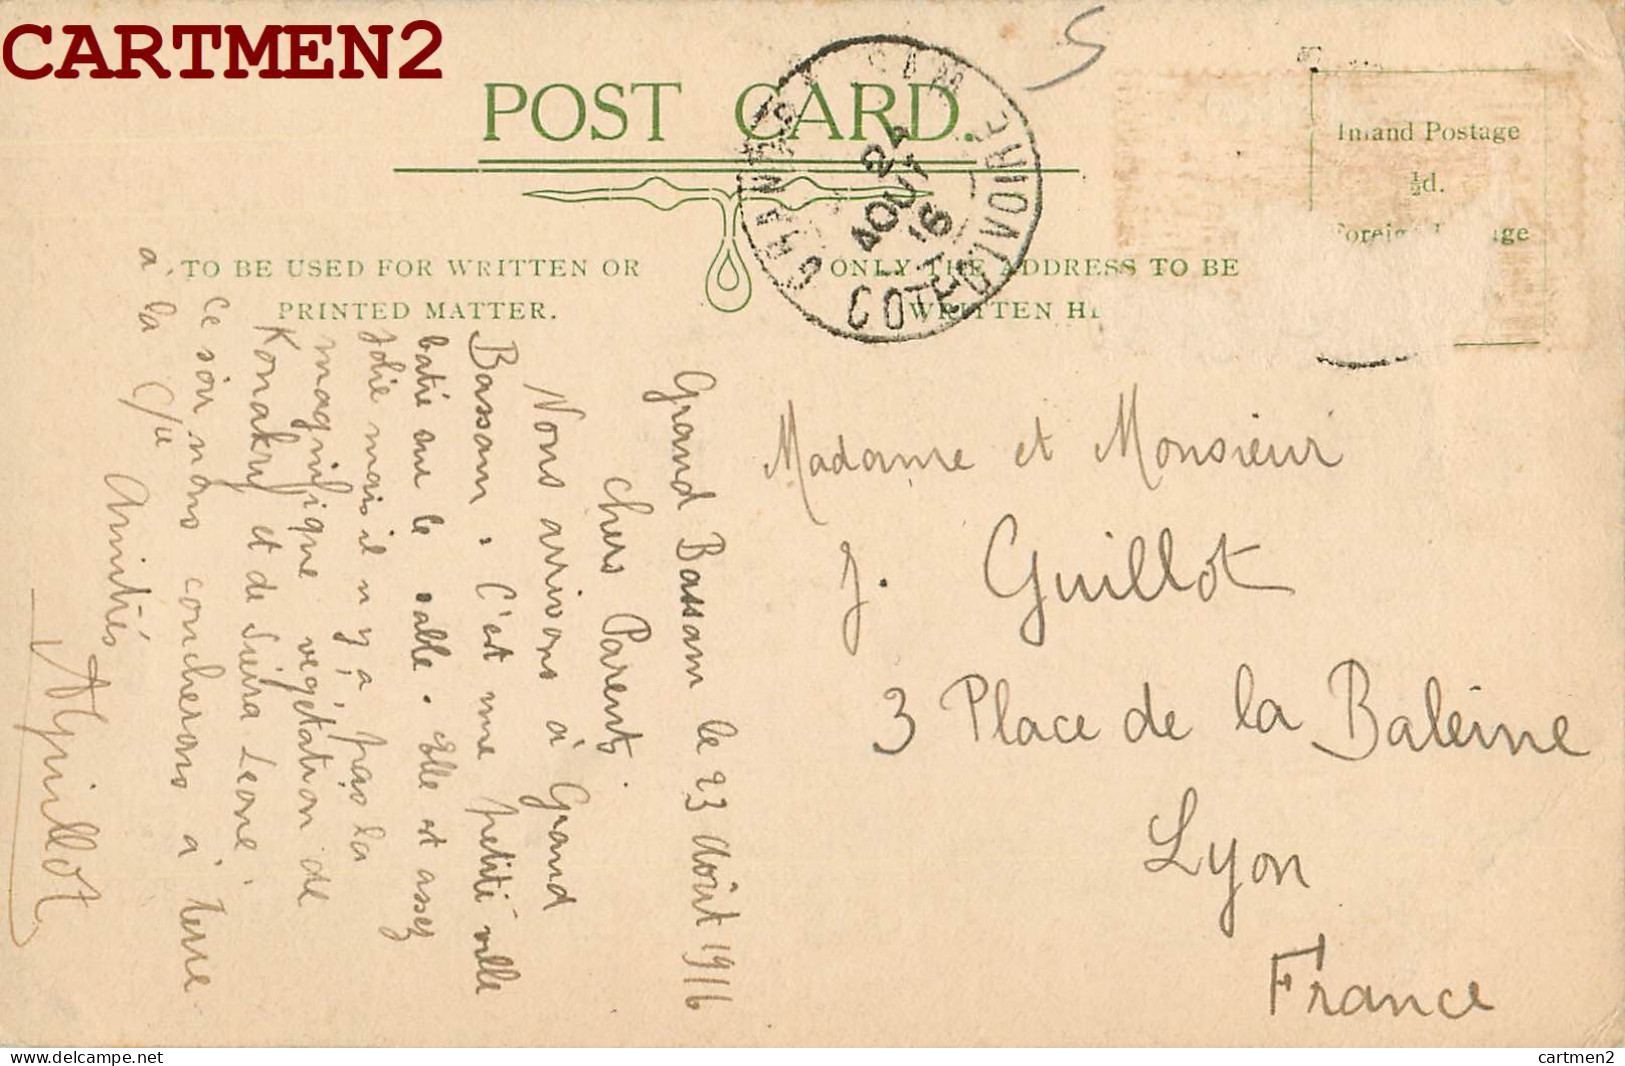 CARTMEN2
POST CARD.
TO BE USED FOR WRITTEN OR
PRINTED MATTER.
ONLY THE ADDRESS TO BE
WRITTEN HE
GRAND BASSAM
24
AOUT
16
COTE D'IVOIRE
5
Inland Postage
½d.
Foreign
Grand Bassam le 23 août 1916
Chers Parents.
Nous arrivons à Grand
Bassam. C'est une petite ville
batie sur le sable. Elle est assez
jolie mais il n'y a pas la
magnifique végétation de
Konakry et de Sierra Leone.
Ce soir nous coucherons à terre
à la C/ie
Amitiés
AGuillot
Madame et Monsieur
J. Guillot
3 Place de la Baleine
Lyon
France
cartmen2.delcampe.net
cartmen2